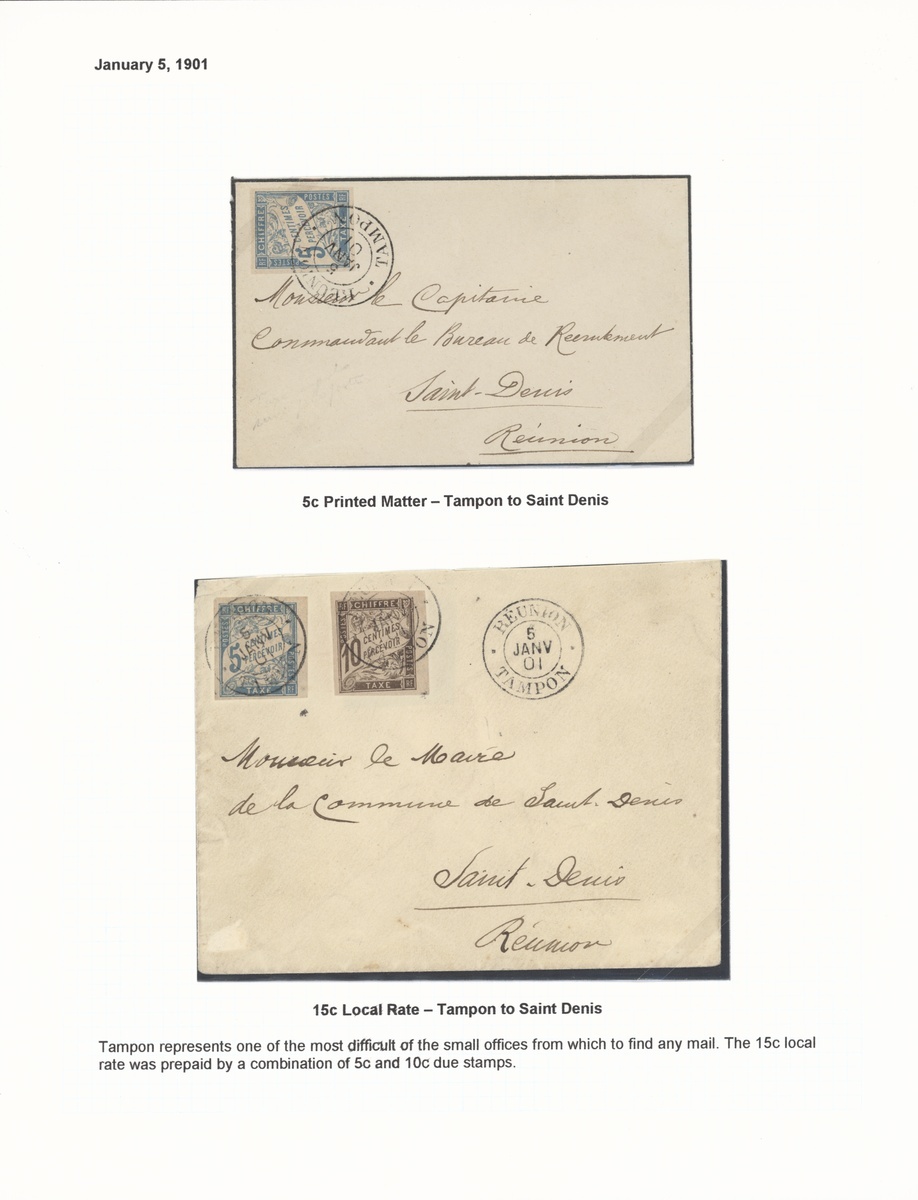 January 5, 1901
CHIFFRE
POSTES
TAXE
5
CENTIMES
PERCEVOIR
RÉUNION
5
JANV
01
TAMPON
Monsieur le Capitaine
Commandant le Bureau de Recrutement
Saint-Denis
Réunion
5c Printed Matter – Tampon to Saint Denis
CHIFFRE
POSTES
5
CENTIMES
PERCEVOIR
TAXE
RF
CHIFFRE
10
CENTIMES
A PERCEVOIR
TAXE
RF
RÉUNION
5
JANV
01
TAMPON
Monsieur le Maire
de la Commune de Saint-Denis
Saint-Denis
Réunion
15c Local Rate – Tampon to Saint Denis
Tampon represents one of the most difficult of the small offices from which to find any mail. The 15c local
rate was prepaid by a combination of 5c and 10c due stamps.